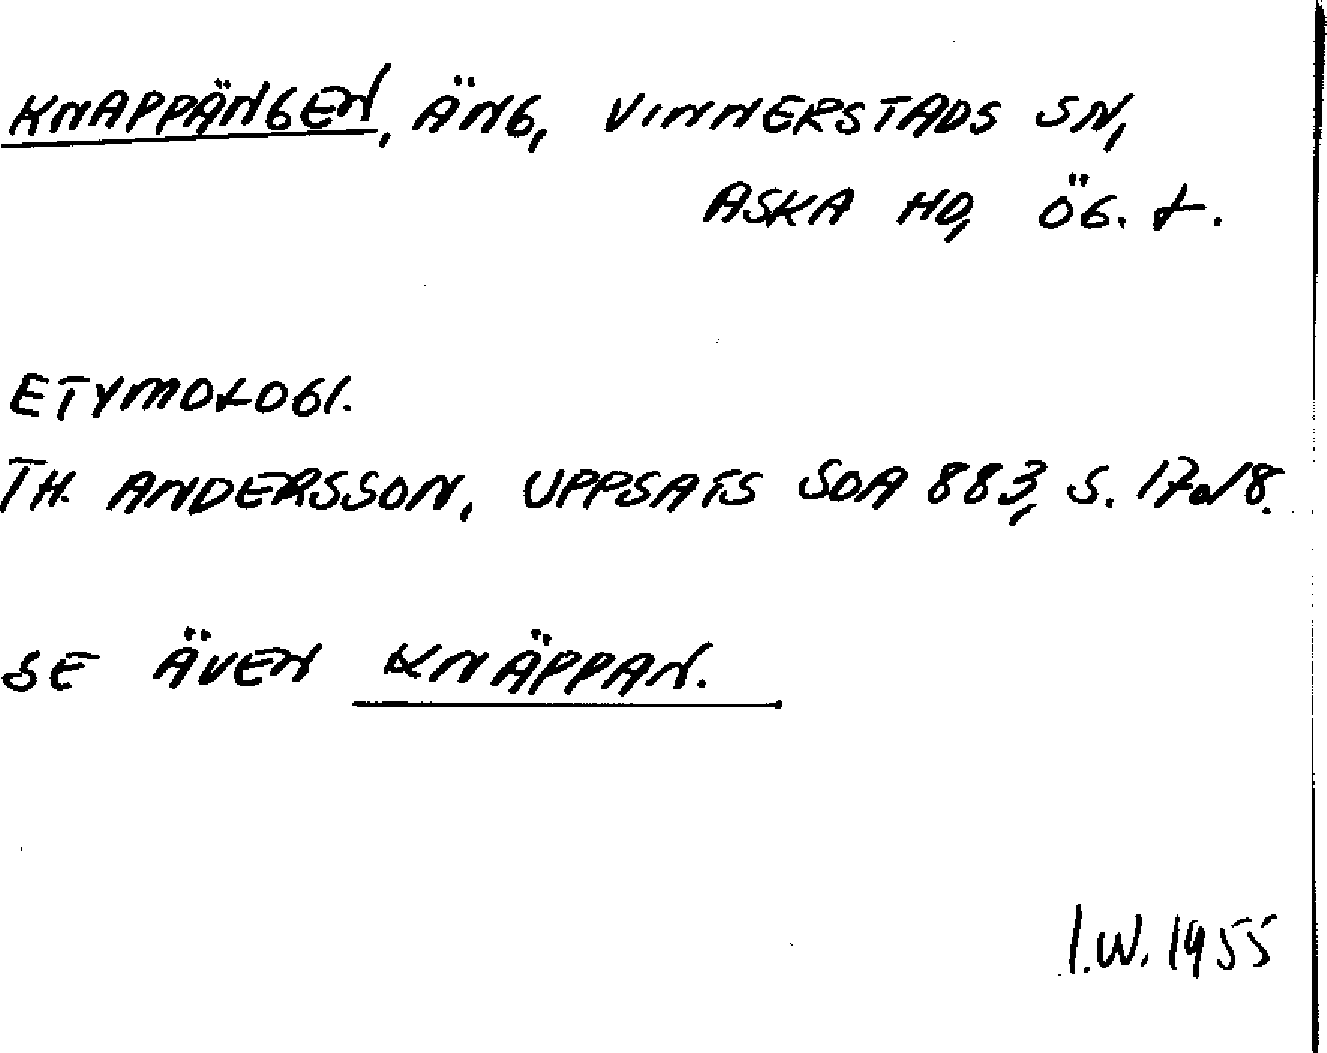 KNAPPÄNGEN, ÄNG, VINNERSTADS SN,
ASKA HD, ÖG. L.
ETYMOLOGI.
TH. ANDERSSON, UPPSATS SOA 883, S. 17o18.
SE ÄVEN KNÄPPAN.
I.W. 1955